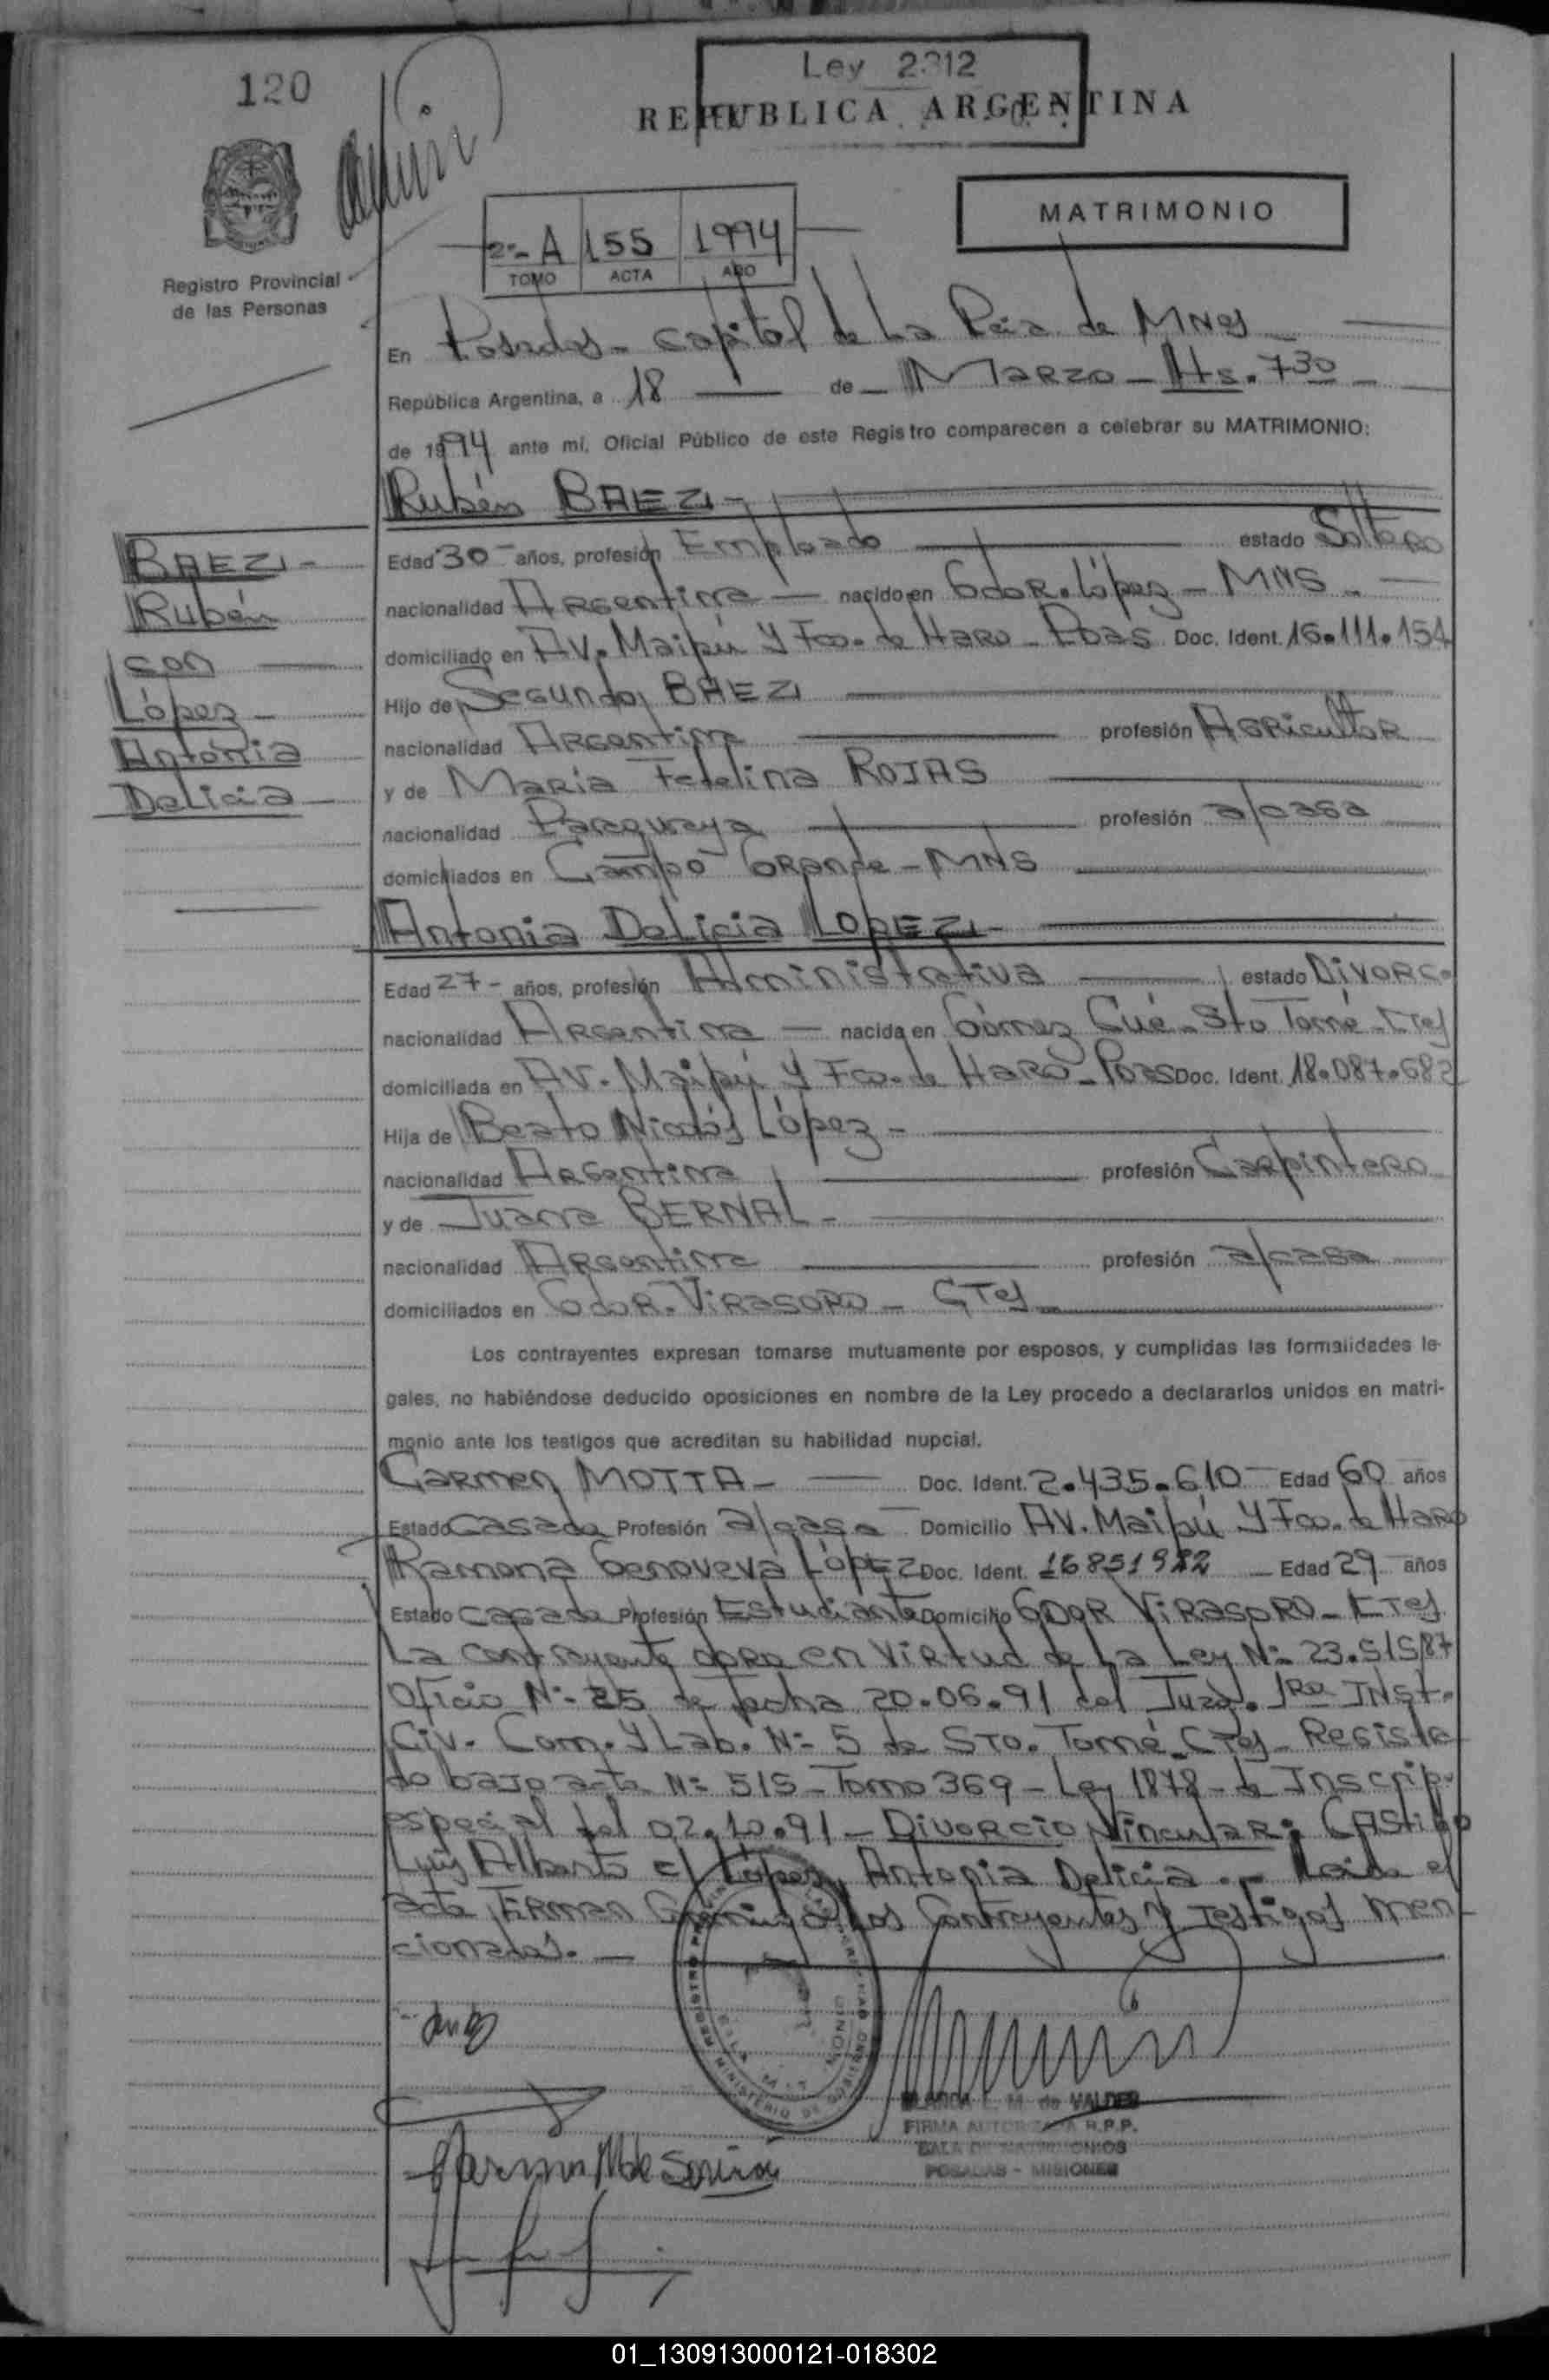 120
Ley 2312
REPUBLICA ARGENTINA
MATRIMONIO
2º- A 155 1994
TOMO ACTA AÑO
Registro Provincial
de las Personas
En Posadas - Capital de La Pcia de MNes
República Argentina, a 18 de MARZO - Hs. 7 30
de 1994 ante mí, Oficial Público de este Registro comparecen a celebrar su MATRIMONIO:
Rubén BAEZ -
BAEZ -
Rubén
con
López -
Antonia
Delicia
Edad 30 - años, profesión Empleado estado Soltero
nacionalidad Argentina - nacido en Gdor. López - MNS -
domiciliado en AV. Maipú y Fco. de HARO - Pdas Doc. Ident. 16.111.154
Hijo de Segundo BAEZ
nacionalidad Argentina profesión Agricultor
y de María Fedelina ROJAS
nacionalidad Paraguaya profesión a/casa
domiciliados en Campo Grande - MNS
Antonia Delicia LOPEZ -
Edad 27 - años, profesión Administrativa estado Divorc.
nacionalidad Argentina - nacida en Gómez Cué - Sto Tomé - CTes
domiciliada en AV. Maipú y Fco. de HARO - Pdas Doc. Ident. 18.087.682
Hija de Beato Nicolás López -
nacionalidad Argentina profesión Carpintero
y de Juana BERNAL -
nacionalidad Argentina profesión a/casa
domiciliados en Gdor. Virasoro - CTes
Los contrayentes expresan tomarse mutuamente por esposos, y cumplidas las formalidades le-
gales, no habiéndose deducido oposiciones en nombre de la Ley procedo a declararlos unidos en matri-
monio ante los testigos que acreditan su habilidad nupcial.
Carmen MOTTA - Doc. Ident. 2.435.610 - Edad 60 años
Estado Casada Profesión a/casa - Domicilio AV. Maipú y Fco. de HARO
Ramona Genoveva López Doc. Ident. 16851982 - Edad 29 años
Estado Casada Profesión Estudiante Domicilio GDOR VIRASORO - CTes
La contrayente obra en virtud de La Ley Nº 23.515/87
Oficio Nº 25 de fecha 20.06.91 del Juzg. 1ra INst.
Civ. Com. y Lab. Nº 5 de STO. Tomé - CTes - Registra
do bajo acta Nº 515 - Tomo 369 - Ley 1878 - de Inscrip.
especial del 02.10.91 - Divorcio Vincular: CAStillo
Luis Alberto c/ López, Antonia Delicia. - Leida el
acta, Firman los Contrayentes y Testigos men
cionados. -
Carmen M de
BLANCA L. M. de VALDES
FIRMA AUTORIZADA R.P.P.
SALA DE MATRIMONIOS
POSADAS - MISIONES
01_130913000121-018302